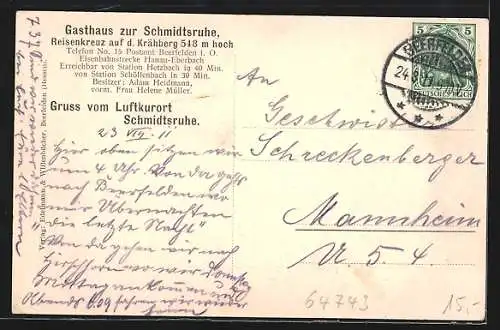 Gasthaus zur Schmidtsruhe,
Reisenkreuz auf d. Krähberg 548 m hoch
Telefon No. 15 Postamt Beerfelden i. O.
Eisenbahnstrecke Hanau-Eberbach
Erreichbar von Station Hetzbach in 40 Min.
von Station Schöllenbach in 30 Min.
Besitzer: Adam Heidmann,
vorm. Frau Helene Müller.
Gruss vom Luftkurort
Schmidtsruhe.
23 VIII 11
Hier oben sitzen wir
um 4 Uhr. Von da gehts
nach Beerfelden wo
wir Übernachten
die letzte Nacht
Von da gehen wir nach
Hirschhorn wo wir
Mittag ankommen und
Abends 6.09 fahren wir wieder
heim
5 5
BEERFELDEN
24.8.11
DEUTSCHES REICH
An
Geschwister
Schreckenberger
Mannheim
U 5 4
64743
15,-